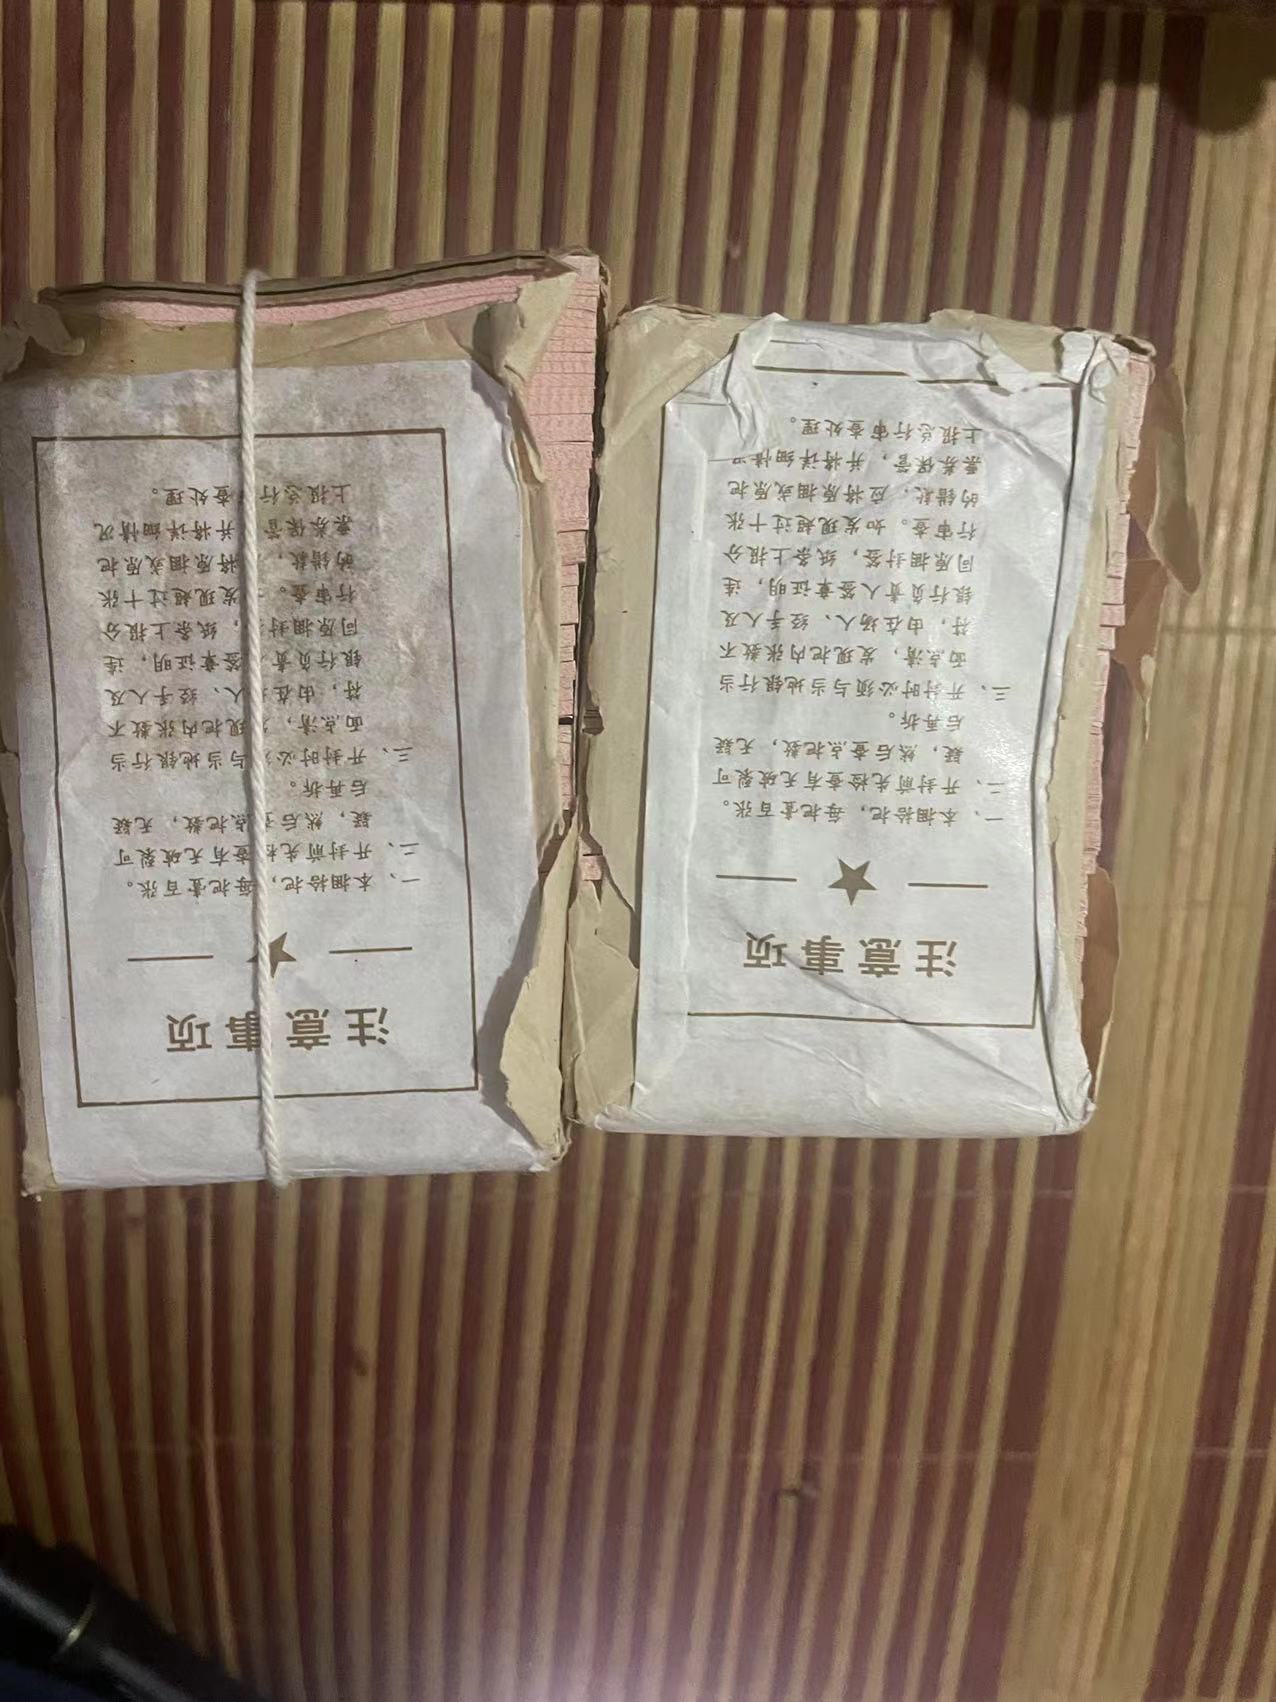 注意事项
一、本捆拾把，每把壹百张。
二、开封前先检查有无破裂可
疑，然后查点把数，无疑
后再拆。
三、开封时必须与当地银行当
面点清，发现把内张数不
符，由在场人、经手人及
银行负责人签章证明，连
同原捆封签，纸条上报分
行审查。如发现超过十张
的错款，应将原捆或原把
票券保管，并将详细情况
上报总行审查处理。
注意事项
一、本捆拾把，每把壹百张。
二、开封前先检查有无破裂可
疑，然后查点把数，无疑
后再拆。
三、开封时必须与当地银行当
面点清，现把内张数不
符，由在人、经手人及
银行负责签章证明，连
同原捆封，纸条上报分
行审查。发现超过十张
的错款，将原捆或原把
票券保管，并将详细情况
上报总行查处理。